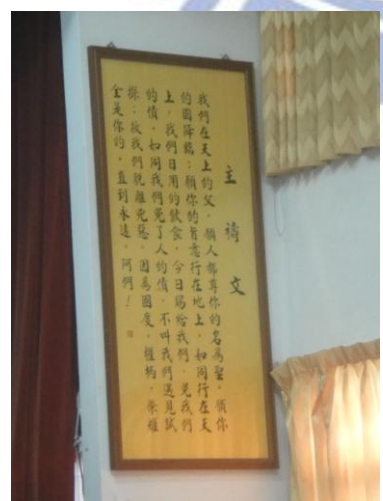 主禱文
我們在天上的父，願人都尊你的名為聖。願你
的國降臨；願你的旨意行在地上，如同行在天
上。我們日用的飲食，今日賜給我們。免我們
的債，如同我們免了人的債。不叫我們遇見試
探；救我們脫離兇惡。因為國度、權柄、榮耀
全是你的，直到永遠。阿們！